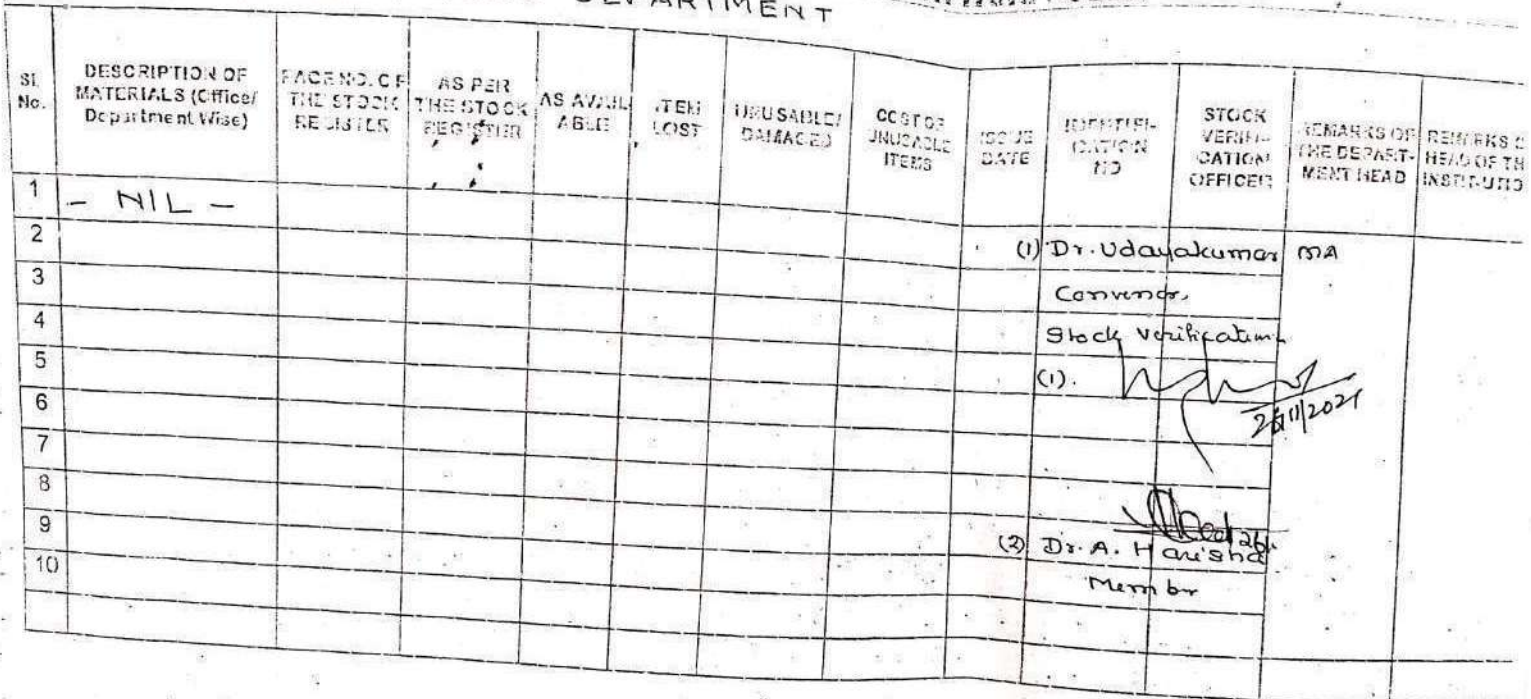 DEPARTMENT
Sl. No.
DESCRIPTION OF MATERIALS (Office/ Department Wise)
PAGE NO. OF THE STOCK REGISTER
AS PER THE STOCK REGISTER
AS AVAIL ABLE
ITEM LOST
UNUSABLE/ DAMAGED
COST OF UNUSABLE ITEMS
ISSUE DATE
IDENTIFI- CATION NO
STOCK VERIFI- CATION OFFICER
REMARKS OF THE DEPART- MENT HEAD
REMARKS HEAD OF TH INSTITUTIO
1 - NIL -
2
(1) Dr. Udayakumar MA
3
Convenor,
4
Stock Verification
5
(1).
6
26/11/2021
7
8
9
(2) Dr. A. Harisha
10
Member